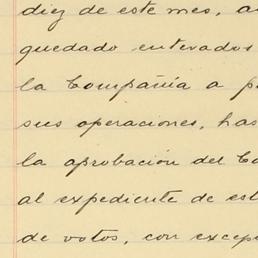 diez de este mes, a
quedado enterados
la Compañía a p
sus operaciones, has
la aprobación del Co
al expediente de est
de votos, con excep